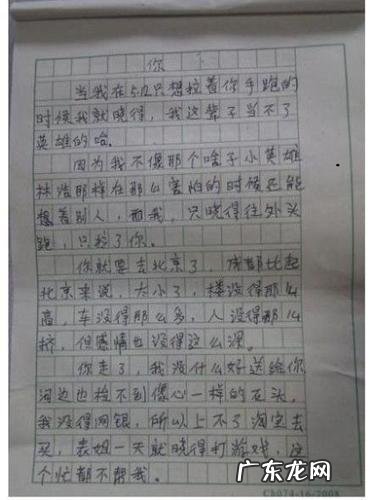 你
当我在512只想拉着你手跑的
时候我就晓得，我这辈子当不了
英雄的哈。
因为我不像那个啥子小英雄
林浩那样在那么害怕的时候还能
想着别人，而我，只晓得往外头
跑，只拉了你。
你就要去北京了，成都比起
北京来说，太小了，楼没得那么
高，车没得那么多，人没得那么
挤，但感情也没得这么深。
你走了，我没什么好送给你
河边也捡不到像心一样的石头，
我没得网银，所以上不了淘宝去
买，表姐一天就晓得打游戏，这
个忙都不帮我。
广东龙网